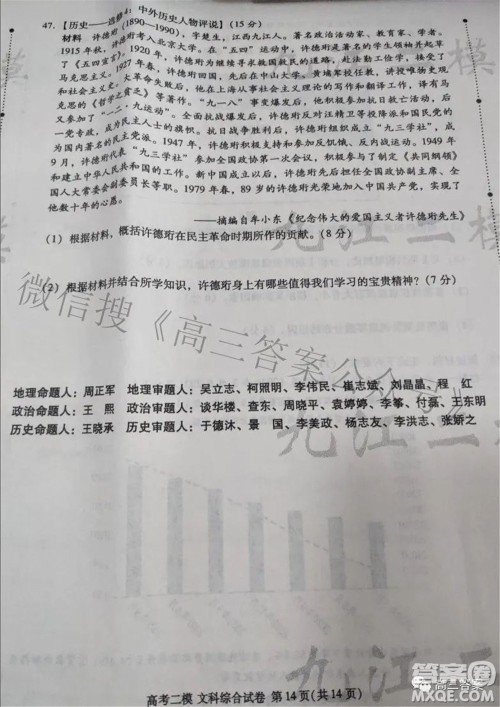 47.【历史——选修4：中外历史人物评说】（15 分）
材料 许德珩（1890—1990），字楚生，江西九江人。著名政治活动家、教育家、学者。
1915 年秋，许德珩考入北京大学。在“五四”运动中，许德珩是著名的学生领袖并起草
了《五四宣言》。1920 年，许德珩为继续寻求救国救民的道路，赴法勤工俭学，接受了
马克思主义。1927 年春，许德珩回国，先后在中山大学、黄埔军校任教，讲授唯物史观
和社会主义史。大革命失败后，他在上海从事社会主义理论的写作和翻译工作，译有马
克思的《哲学之贫乏》等著作。“九一八”事变发后，他积极参加抗日救亡活动，后
又参加了“一二·九运动”。全面抗战爆发后，许德珩反对汪精卫等投降派及国民党的
一党专政，成为民主人士的旗帜。抗日战争胜利后，许德珩组织创立“九三学社”，成
为国内著名的民主党派。1947 年，许德珩积极支持和参加反饥饿、反内战运动。1949 年
9 月，许德珩代表“九三学社”参加全国政协第一次会议，积极参与了制定《共同纲领》
和建立中华人民共和国的工作。新中国成立以后，许德珩先后担任全国政协副主席、全
国人大常委会副委员长等职。1979 年春，89 岁的许德珩光荣地加入中国共产党，实现了
他数十年的心愿。
——摘编自牟小东《纪念伟大的爱国主义者许德珩先生》
（1）根据材料，概括许德珩在民主革命时期所作的贡献。（8 分）
（2）根据材料并结合所学知识，许德珩身上有哪些值得我们学习的宝贵精神？（7 分）
微信搜《高三答案公众号》
地理命题人：周正军 地理审题人：吴立志、柯照明、李伟民、崔志斌、刘晶晶、程 红
政治命题人：王 熙 政治审题人：谈华楼、查东、周晓平、袁婷婷、李筝、付磊、王东明
历史命题人：王晓承 历史审题人：于德沐、景 国、李美政、杨志友、李洪志、张娇之
九江二模
高考二模 文科综合试卷 第 14 页（共 14 页）
答案圈
高三答案
MXQE.COM